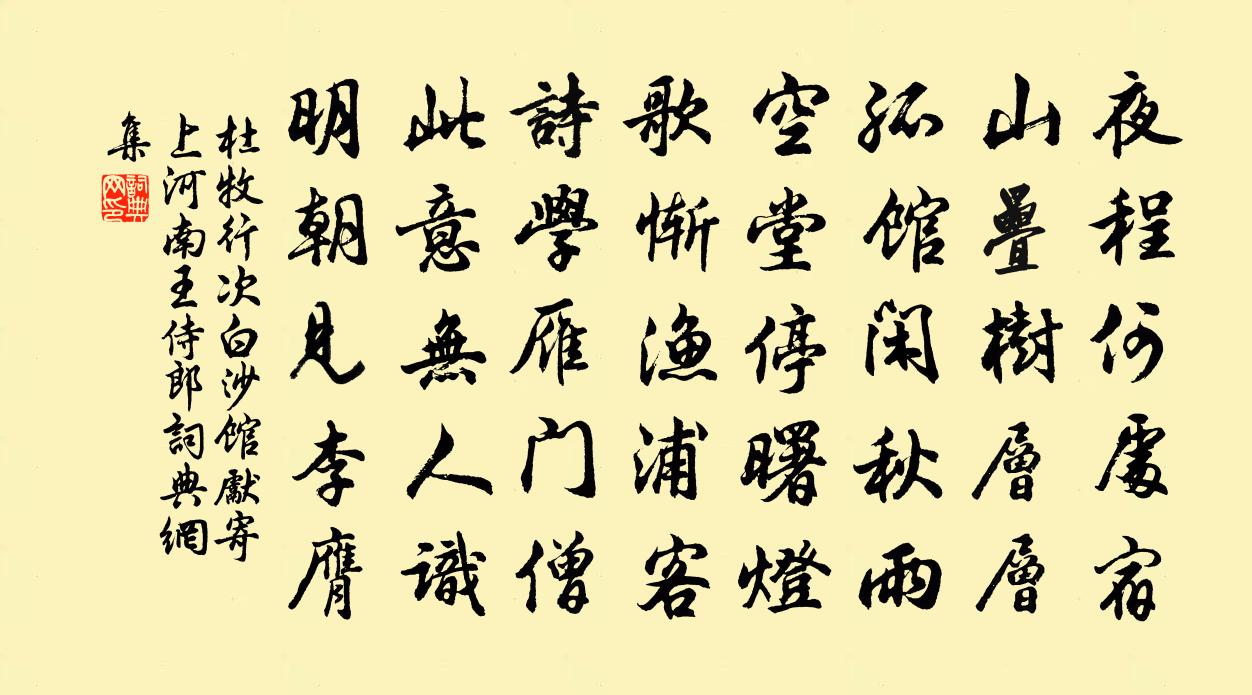 夜程何處宿
山疊樹層層
孤館閑秋雨
空堂停曙燈
歌慚漁浦客
詩學雁门僧
此意無人識
明朝見李膺
杜牧行次白沙館獻寄
上河南王侍郎詞典網
集
詞典
网印